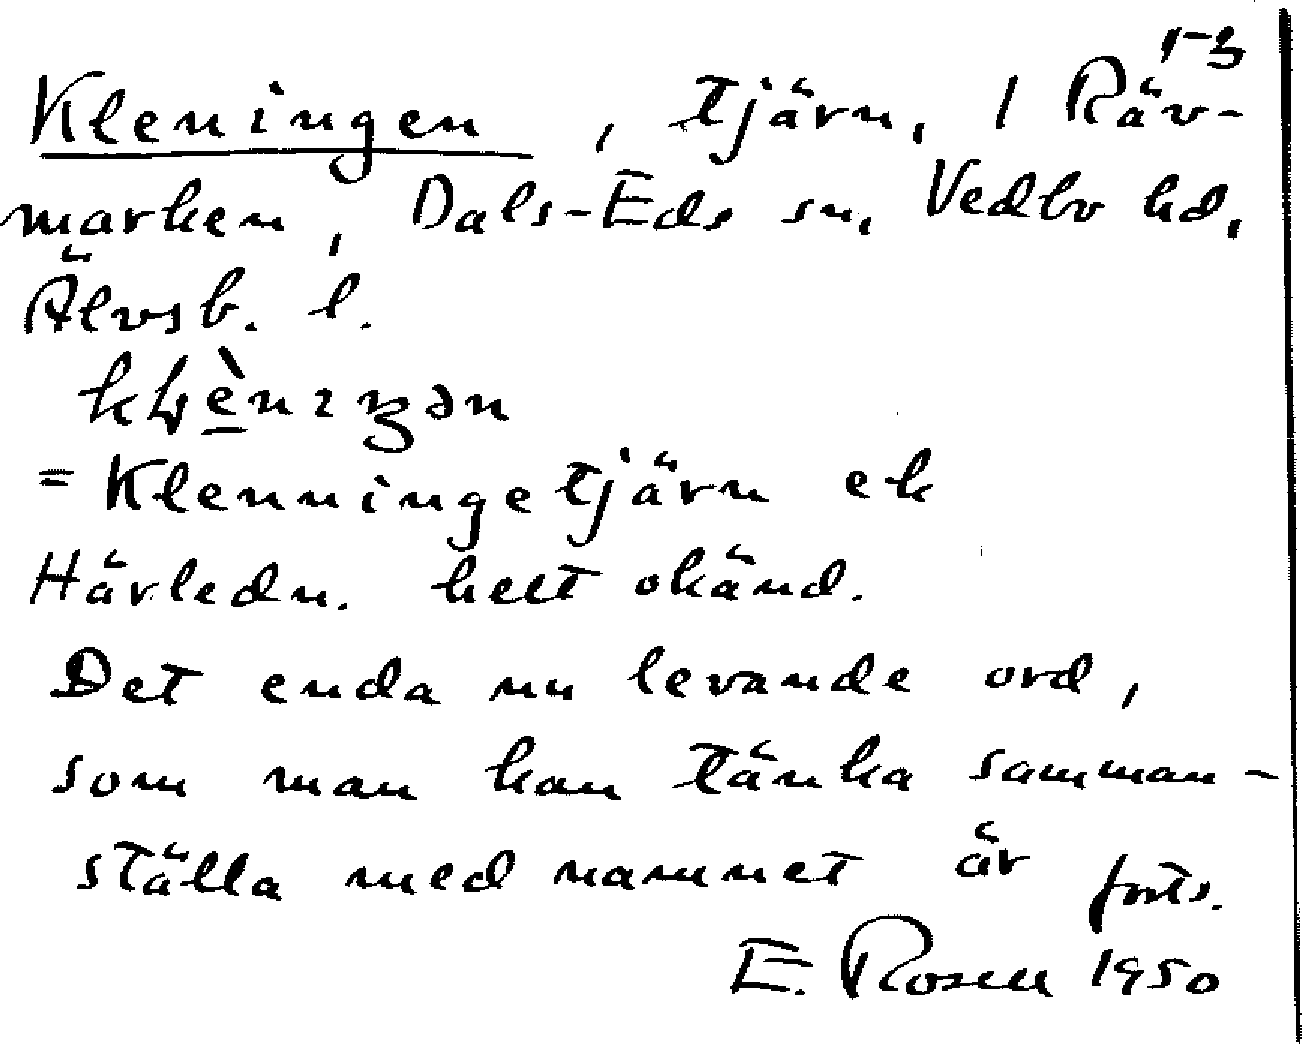 1-3
Kleningen, tjärn, 1 Räv-
marken, Dals-Eds sn, Vedbo hd,
Älvsb. l.
= Klenningetjärn ek
Härledn. helt okänd.
Det enda nu levande ord,
som man kan tänka samman-
ställa med namnet är forts.
E. Rosell 1950